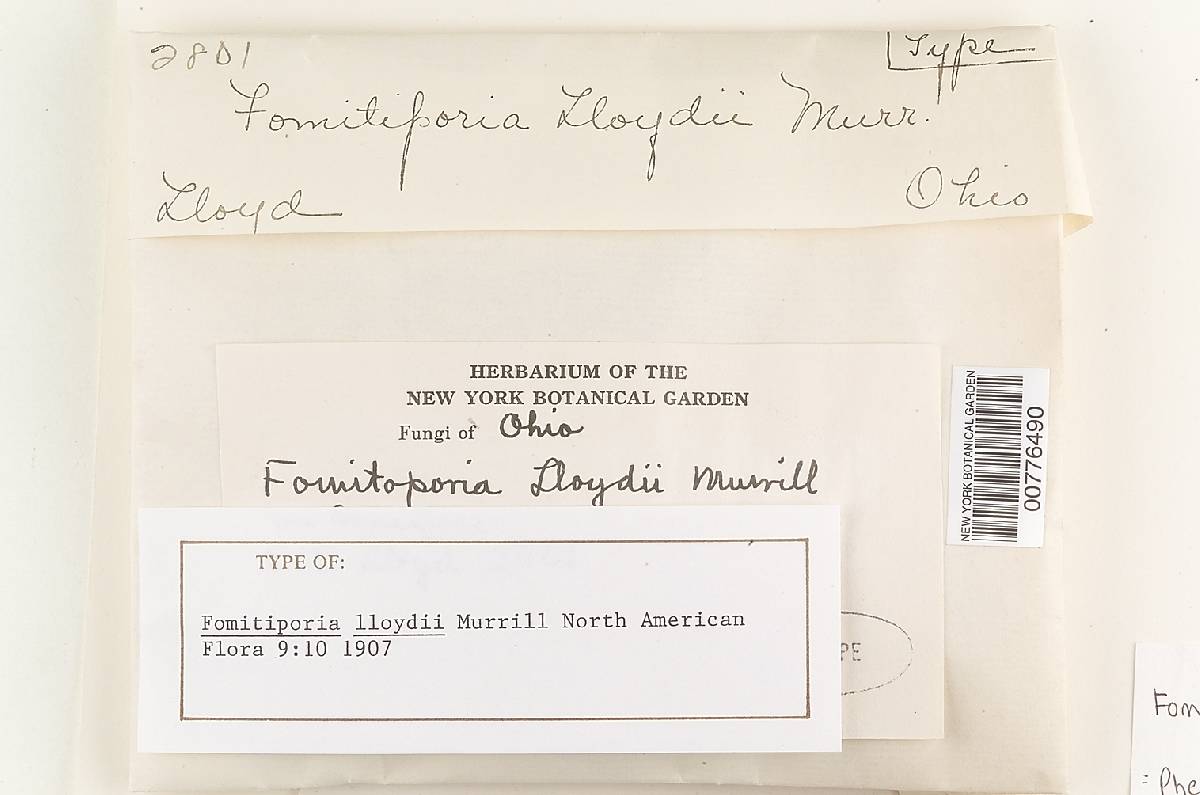 2801
Type
Fomitiporia Lloydii Murr.
Lloyd
Ohio
HERBARIUM OF THE
NEW YORK BOTANICAL GARDEN
Fungi of Ohio
Fomitoporia Lloydii Murrill
TYPE OF:
Fomitiporia lloydii Murrill North American
Flora 9:10 1907
PE
NEW YORK BOTANICAL GARDEN
00776490
Fom
= Phe